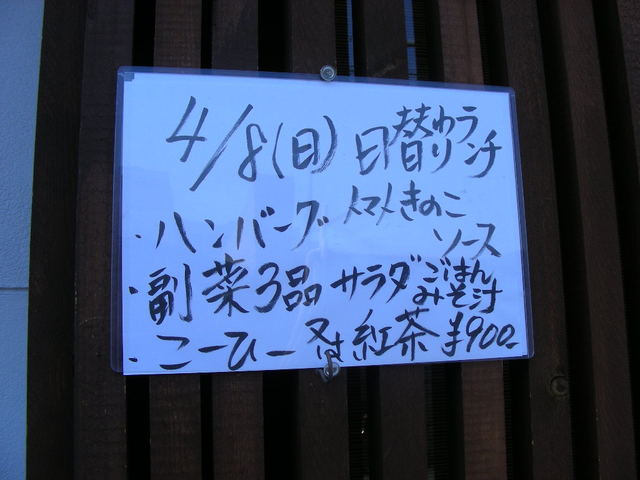 4/8(日) 日替わりランチ
・ハンバーグ トマトきのこソース
・副菜3品 サラダ ごはん みそ汁
・こーひー又は紅茶 ¥900-